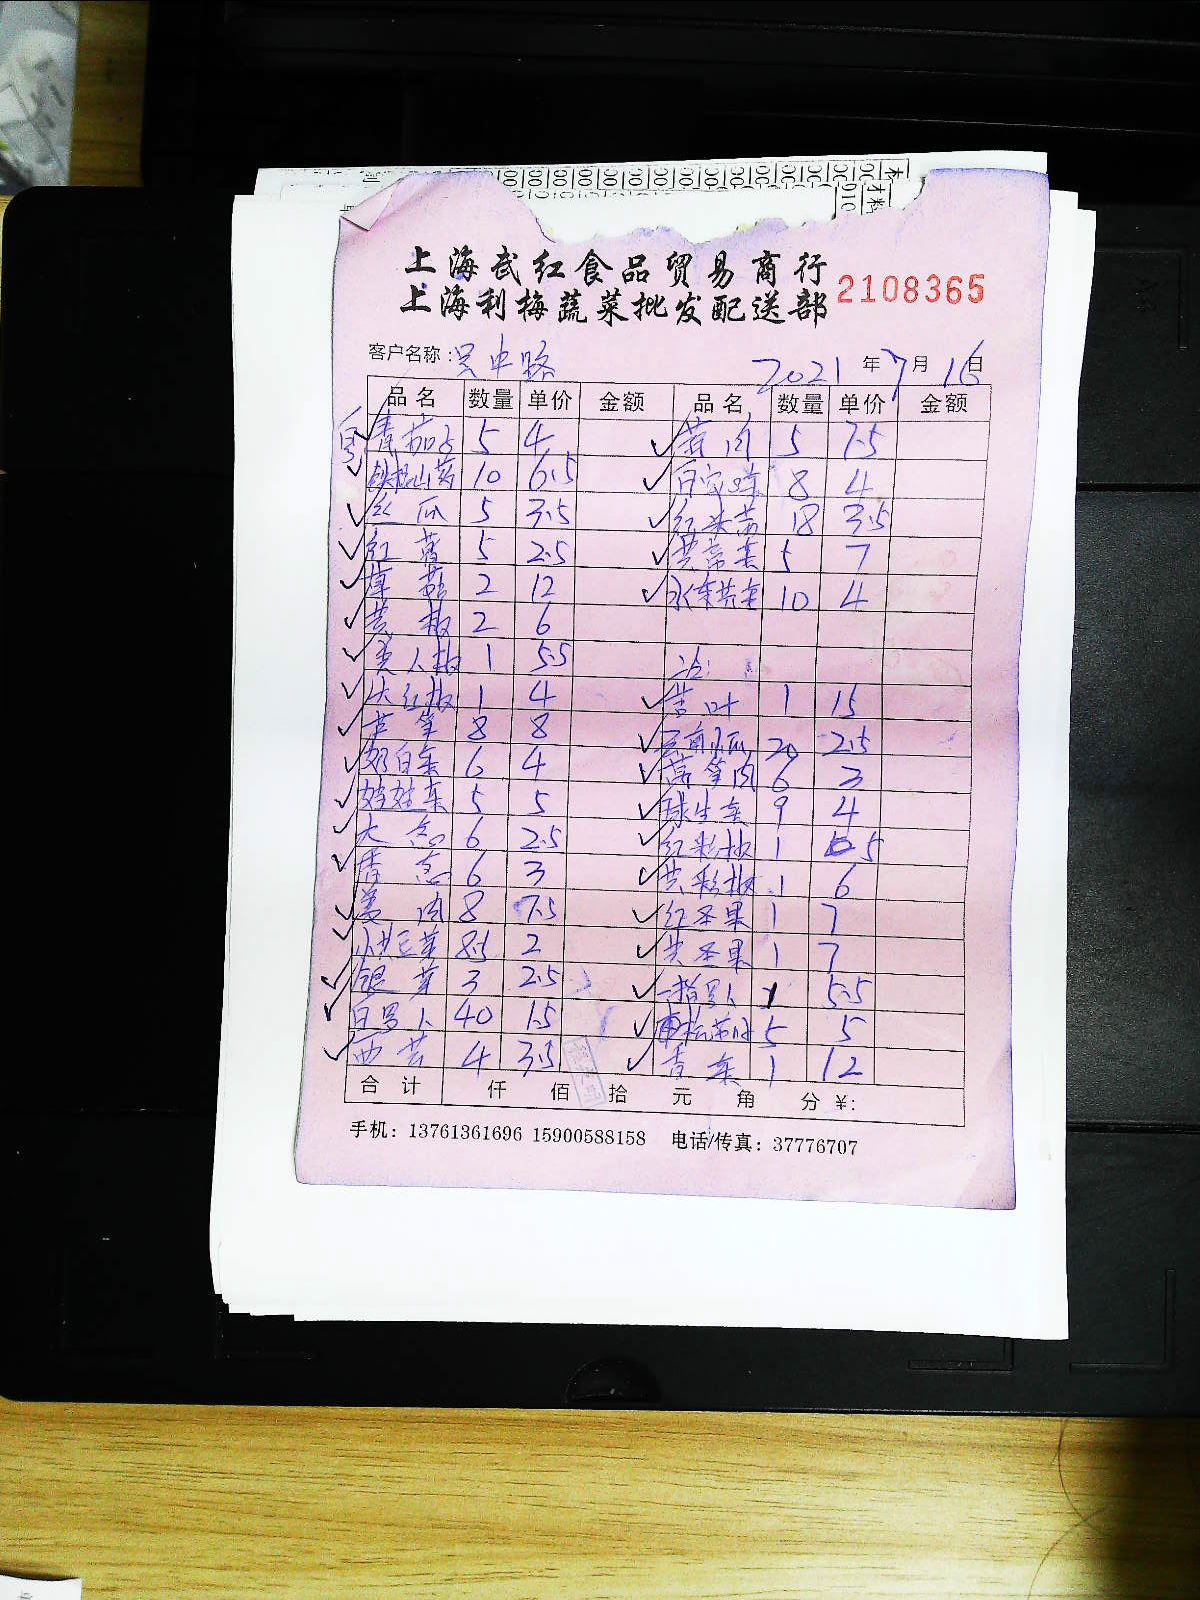 上海武红食品贸易商行
上海利梅蔬菜批发配送部
2108365
客户名称：吴中路 2021年7月16日
品名 数量 单价 金额 品名 数量 单价 金额
青茄子 5 4 5 7.5
铁棍山药 10 6.5 8 4
丝瓜 5 3.5 红米苋 18 3.5
红薯 5 2.5 5 7
草菇 2 12 10 4
黄椒 2 6
美人椒 1 5.5
大红椒 1 4 1 15
芦笋 8 8 20 2.5
奶白菜 6 4 莴笋肉 6 3
娃娃菜 5 5 球生菜 9 4
大葱 6 2.5 红彩椒 1 5
香葱 6 3 黄彩椒 1 6
姜肉 8 7.5 红圣果 1 7
小黄豆芽 8.5 2 黄圣果 1 7
银芽 3 2.5 一指罗卜 1 5.5
白罗卜 40 1.5 5 5
西芹 4 3.5 1 12
合计 仟 佰 拾 元 角 分 ¥:
手机：13761361696 15900588158 电话/传真：37776707